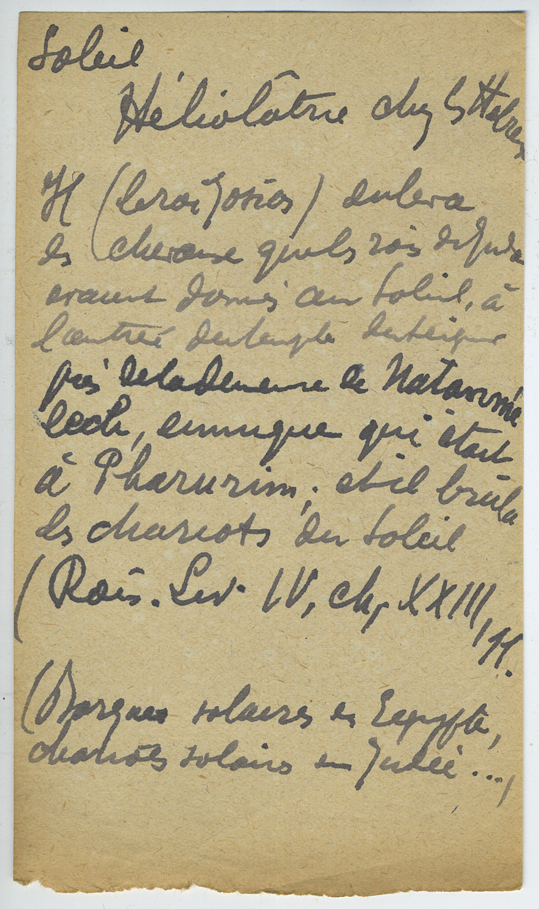 Soleil
Héliolâtrie chez les Hébreux
Il (le roi Josias) enleva
les chevaux que les rois de Juda
avaient donnés au Soleil, à
l'entrée du temple du Seigneur
près de la demeure de Natanmé
lech, eunuque qui était
à Pharurim ; et il brûla
les chariots du Soleil
(Rois. Liv. IV, ch. XXIII, 11.
(Barques solaires en Egypte,
chariots solaires en Judée...)